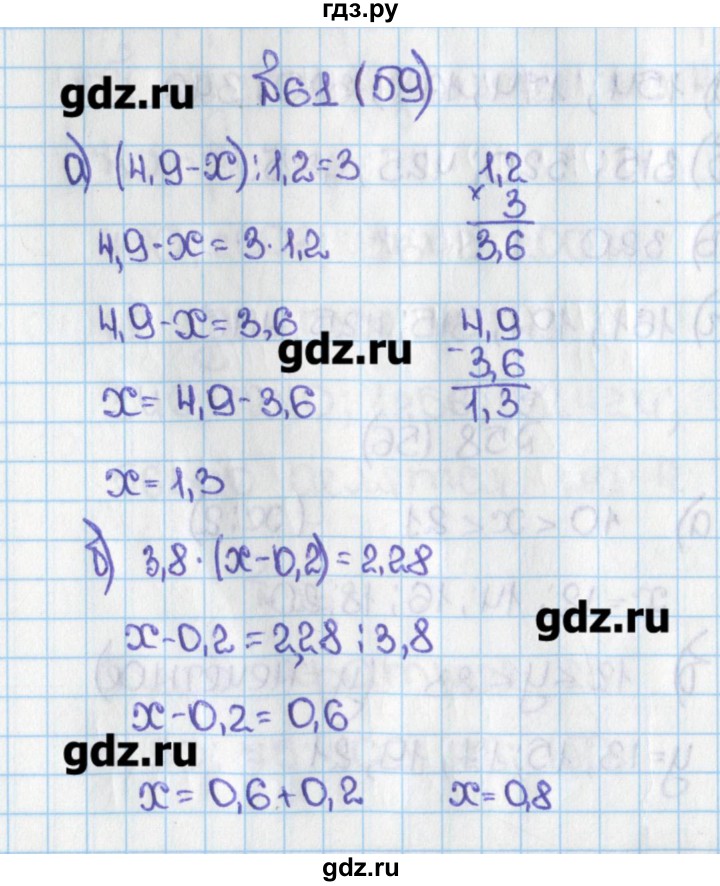 гдз.ру
№61 (59)
gdz.ru
а) (4,9-x):1,2=3
1,2
× 3
3,6
4,9-x=3·1,2
4,9-x=3,6
gdz.ru
4,9
- 3,6
1,3
x=4,9-3,6
x=1,3
б) 3,8·(x-0,2)=2,28
gdz.ru
x-0,2=2,28:3,8
x-0,2=0,6
gdz.ru
x=0,6+0,2 x=0,8
gdz.ru